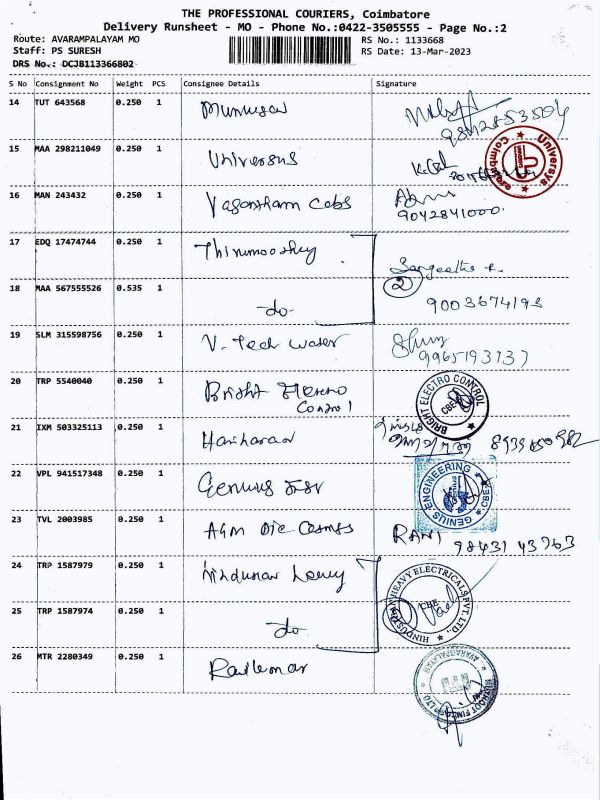 THE PROFESSIONAL COURIERS, Coimbatore
Delivery Runsheet - MO - Phone No.:0422-3505555 - Page No.:2
Route: AVARAMPALAYAM MO RS No.: 1133668
Staff: PS SURESH RS Date: 13-Mar-2023
DRS No.: DCJB113366802
S No Consignment No Weight PCS Consignee Details Signature
14 TUT 643568 0.250 1
15 MAA 298211049 0.250 1 Universus
Universys Coimbatore
16 MAN 243432 0.250 1 Vasantham Cabs
9042841000
17 EDQ 17474744 0.250 1 Thirumoorthy
Sangeetha
18 MAA 567555526 0.535 1 -do- 2 9003674193
19 SLM 315598756 0.250 1 V-Tech water
9965193737
20 TRP 5540040 0.250 1 Bright Electro
Control
BRIGHT ELECTRO CONTROL CBE
21 IXM 503325113 0.250 1 Hariharan
22 VPL 941517348 0.250 1 Genius
GENIUS ENGINEERING CBE
23 TVL 2003985 0.250 1 AGM Die RANI
98431 43763
24 TRP 1587979 0.250 1 Hindustan Heavy
HINDUSTAN HEAVY ELECTRICALS PVT. LTD., CBE
25 TRP 1587974 0.250 1 -do-
26 MTR 2280349 0.250 1
MUTHOOT FINCORP LTD AVARAMPALAYAM